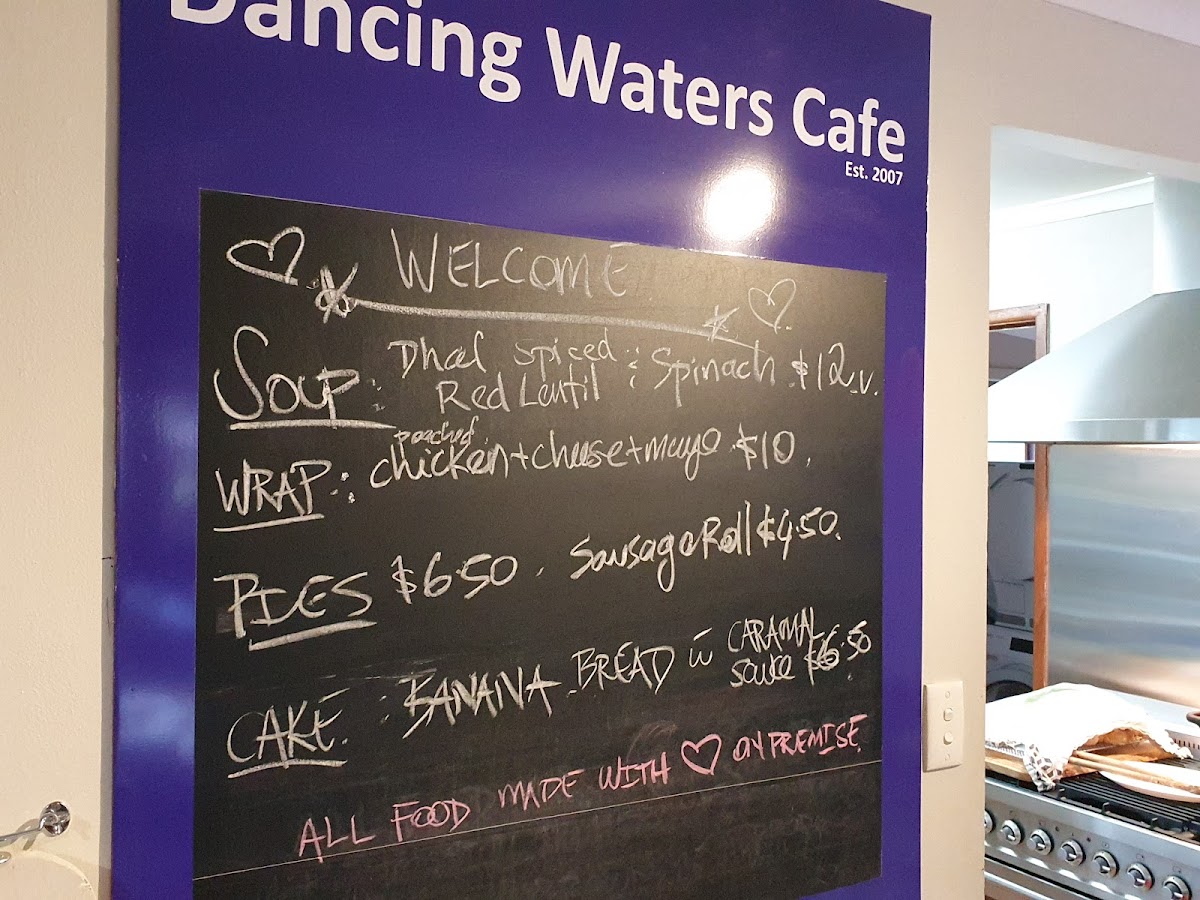 Dancing Waters Cafe
Est. 2007
WELCOME
SOUP: Dhal Spiced Red Lentil & Spinach $12 v.
WRAP: poached chicken + cheese + mayo $10.
PIES $6.50. Sausage Roll $4.50.
CAKE: BANANA BREAD w CARAMAL sauce $6.50.
ALL FOOD MADE WITH ♡ ON PREMISE.